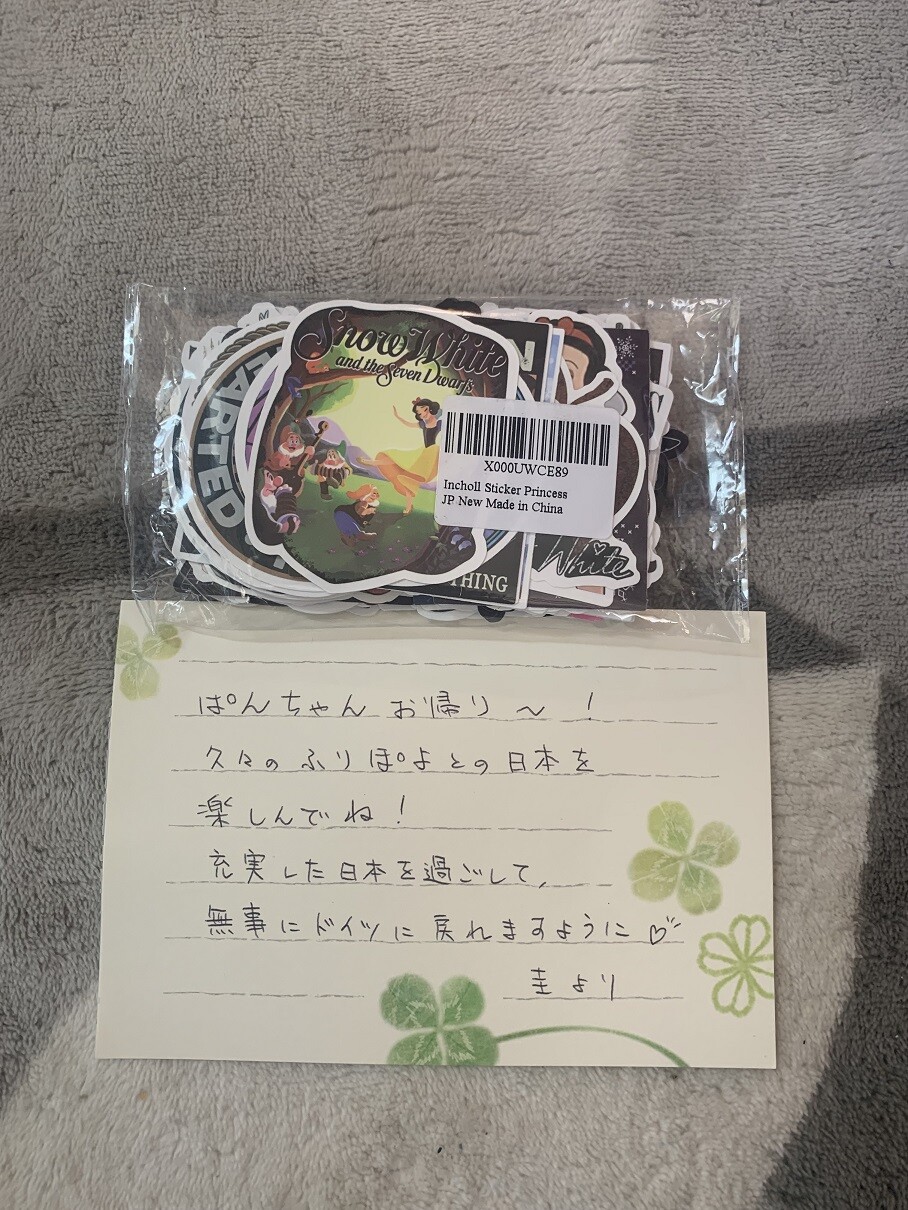 Snow White
and the Seven Dwarfs
HEARTED
X000UWCE89
Incholl Sticker Princess
JP New Made in China
White
THING
ぱんちゃんお帰り〜!
久々のふりぽよとの日本を
楽しんでね!
充実した日本を過ごして、
無事にドイツに戻れますように♡
圭より